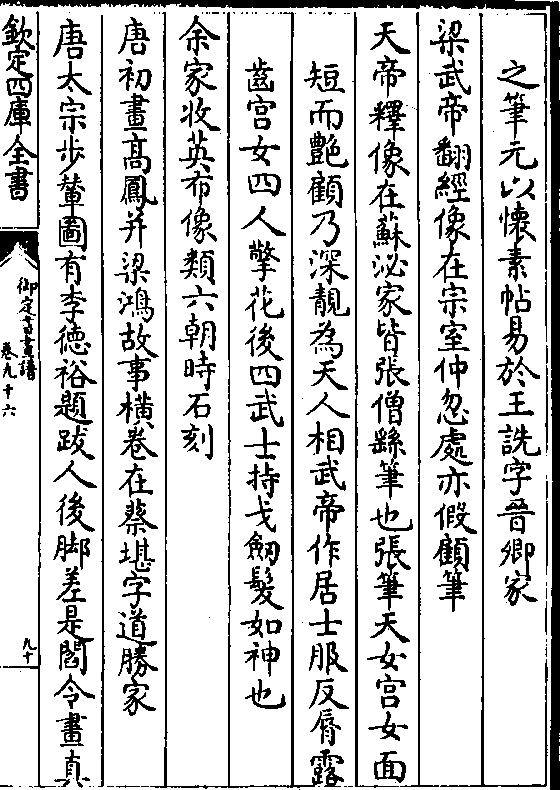 之筆元以懷素帖易於王詵字晉卿家
梁武帝翻經像在宗室仲忽處亦假顧筆
天帝釋像在蘇泌家皆張僧繇筆也張筆天女宫女面
短而艶顧乃深靚為天人相武帝作居士服反脣露
齒宫女四人擎花後四武士持戈劒髮如神也
余家收英布像類六朝時石刻
唐初畫髙鳳并梁鴻故事横卷在蔡堪字道勝家
唐太宗步輦圖有李德裕題跋人後脚差是閻令畫真
欽定四庫全書
御定書畫譜
卷九十六
九十